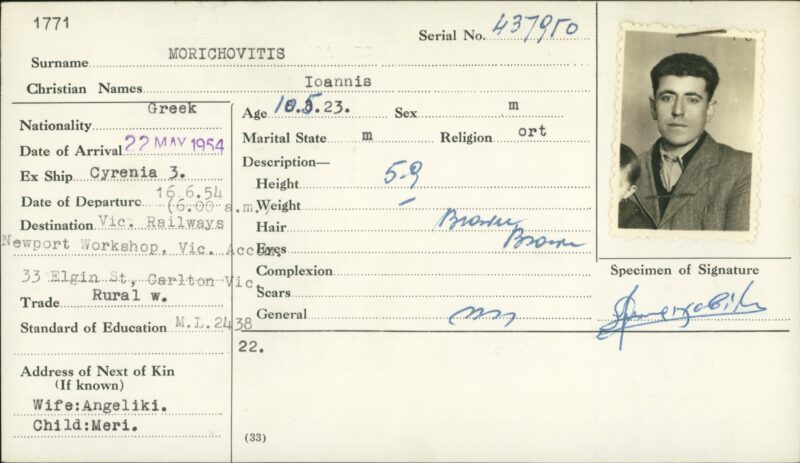 1771
Serial No. 437950
Surname MORICHOVITIS
Christian Names Ioannis
Nationality Greek
Date of Arrival 22 MAY 1954
Ex Ship Cyrenia 3.
Date of Departure 16.6.54
(6.00 a.m.)
Destination Vic. Railways
Newport Workshop, Vic. Accom.
33 Elgin St, Carlton Vic.
Trade Rural w.
Standard of Education M.L.2438
Address of Next of Kin
(If known)
Wife:Angeliki.
Child:Meri.
Age 23. Sex m
Marital State m Religion ort
Description—
Height 5-9
Weight -
Hair Brown
Eyes Brown
Complexion
Scars
General
22.
(33)
Specimen of Signature